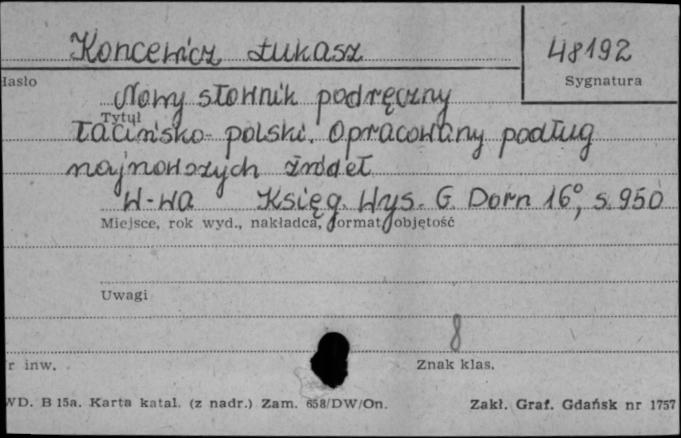 Koncewicz Łukasz
48192
Hasło
Sygnatura
Nowy słownik podręczny
Tytuł
łacińsko-polski. Opracowany podług
najnowszych źródeł
W-wa Księg. Wys. G. Dorn 16°, s. 950
Miejsce, rok wyd., nakładca, format, objętość
Uwagi
8
r inw.
Znak klas.
WD. B 15a. Karta katal. (z nadr.) Zam. 658/DW/On.
Zakł. Graf. Gdańsk nr 1757